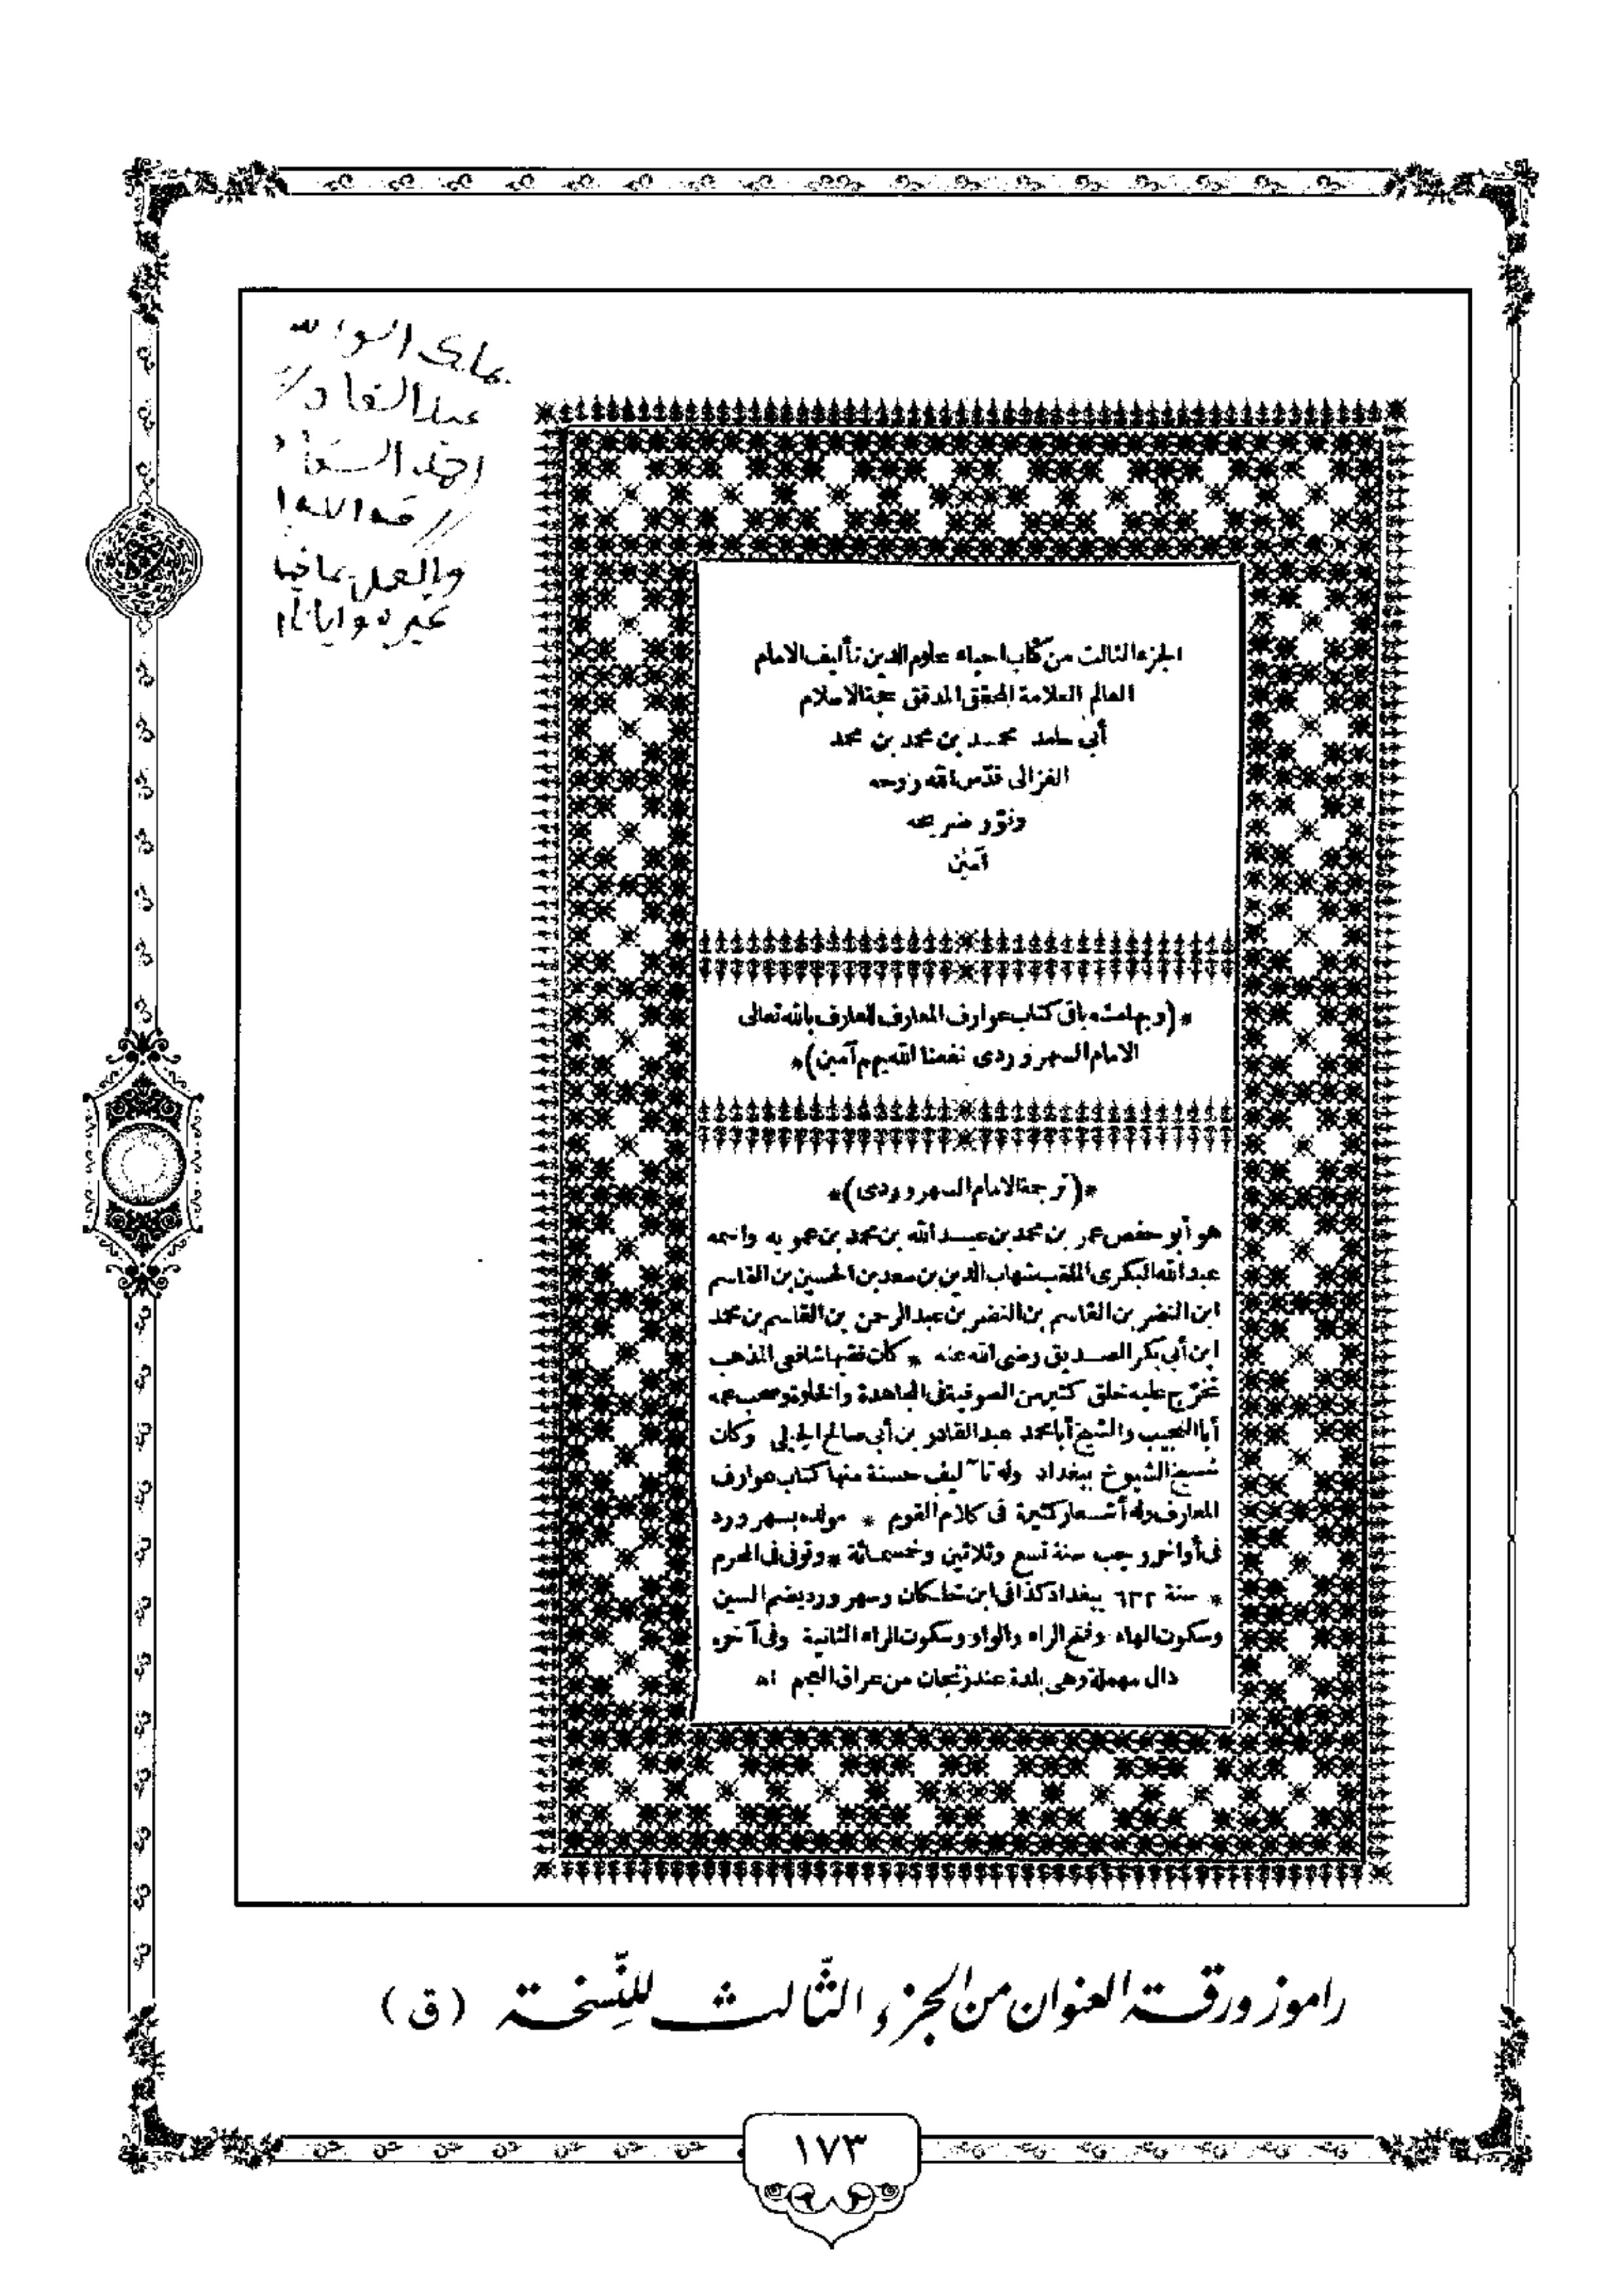 عبدالقادر
احمد السقاف
والعمل بما فيها
الجزء الثالث من كتاب احياء علوم الدين تأليف الامام
العالم العلامة المحقق المدقق حجة الاسلام
أبى حامد محمد بن محمد بن محمد
الغزالى قدّس الله روحه
ونوّر ضريحه
آمين
*(وبهامشه باقى كتاب عوارف المعارف للعارف بالله تعالى
الامام السهروردى نفعنا الله بهم آمين)*
*(ترجمة الامام السهروردى)*
هو أبو حفص عمر بن محمد بن عبد الله بن محمد بن عمويه واسمه
عبد الله البكرى الملقب شهاب الدين بن سعد بن الحسين بن القاسم
ابن النضر بن القاسم بن النضر بن عبد الرحمن بن القاسم بن محمد
ابن أبى بكر الصديق رضى الله عنه * كان فقيها شافعى المذهب
تخرّج عليه خلق كثير من الصوفية فى المجاهدة والخلوة وصحب عمه
أبا النجيب والشيخ أبا محمد عبد القادر بن أبى صالح الجيلى وكان
شيخ الشيوخ ببغداد وله تآليف حسنة منها كتاب عوارف
المعارف وله أشعار كثيرة فى كلام القوم * مولده بسهرورد
فى أواخر رجب سنة تسع وثلاثين وخمسمائة * وتوفى فى المحرم
* سنة ٦٣٢ ببغداد كذا فى ابن خلكان وسهرورد بضم السين
وسكون الهاء وفتح الراء والواو وسكون الراء الثانية وفى آخره
دال مهملة وهى بلدة عند زنجان من عراق العجم اه
راموز ورقة العنوان من الجزء الثّالث للنِّسخة (ق)
١٧٣